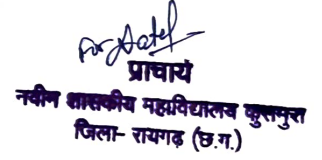 For
प्राचार्य
नवीन शासकीय महाविद्यालय कुसमुरा
जिला- रायगढ़ (छ.ग.)